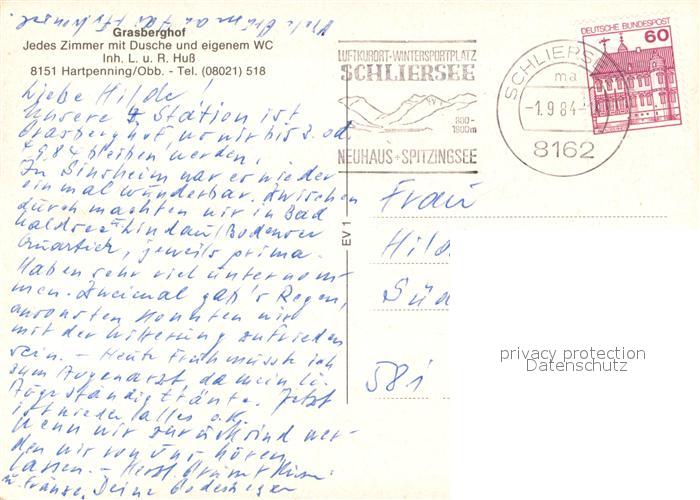 Grasberghof
Jedes Zimmer mit Dusche und eigenem WC
Inh. L. u. R. Huß
8151 Hartpenning/Obb. - Tel. (08021) 518
Liebe Hilde!
Unsere Station ist
Grasberghof, wo wir bis 3. od.
4.9.84 bleiben werden.
In Sinsheim war es wieder
einmal wunderbar. Zwischen
durch machten wir in Bad
Waldsee u. Lindau/Bodensee
Quartier, jeweils prima.
Haben sehr viel unternom-
men. Zweimal gab's Regen,
ansonsten konnten wir
mit der Witterung zufrieden
sein. - Heute früh musste ich
zum Augenarzt, da mein li.
Auge ständig tränte. Jetzt
ist wieder alles o.k.
Wenn wir zurück sind wer-
den wir von uns hören
lassen. - Herzl.
u. Deine
LUFTKURORT·WINTERSPORTPLATZ
SCHLIERSEE
800-
1800m
NEUHAUS+SPITZINGSEE
SCHLIERSEE
ma
-1.9.84-
8162
DEUTSCHE BUNDESPOST
60
EV 1
Frau
Hild
Süd
581
privacy protection
Datenschutz